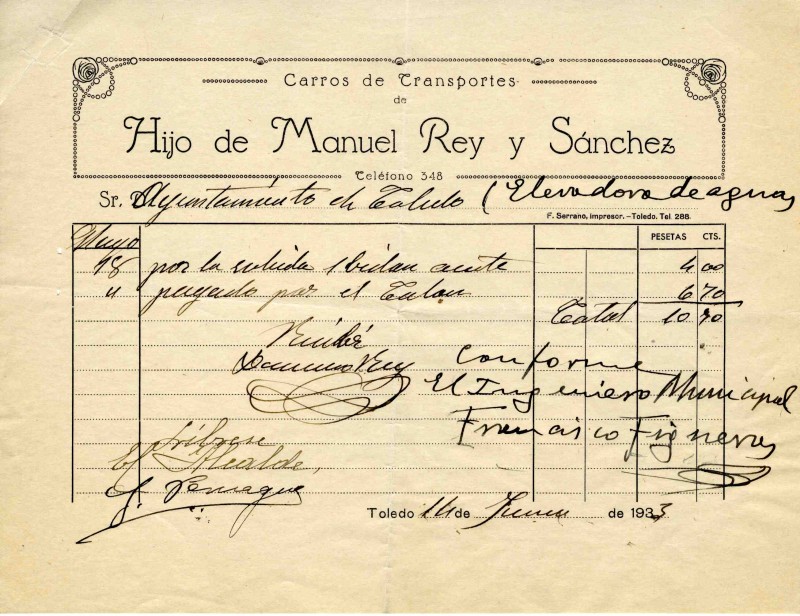 Carros de Transportes
de
Hijo de Manuel Rey y Sánchez
Teléfono 348
Sr. Ayuntamiento de Toledo (Elevadora de aguas
F. Serrano, impresor.-Toledo. Tel. 288
PESETAS CTS.
Mayo
18 por la subida 1 bidan aceite 4 00
" pagado por el Talon 6 70
Total 10 70
Recibí
Rey
Conforme
El Ingeniero Municipal
Francisco Figueras
Líbrese
El Alcalde,
Toledo 14 de Junio de 1933